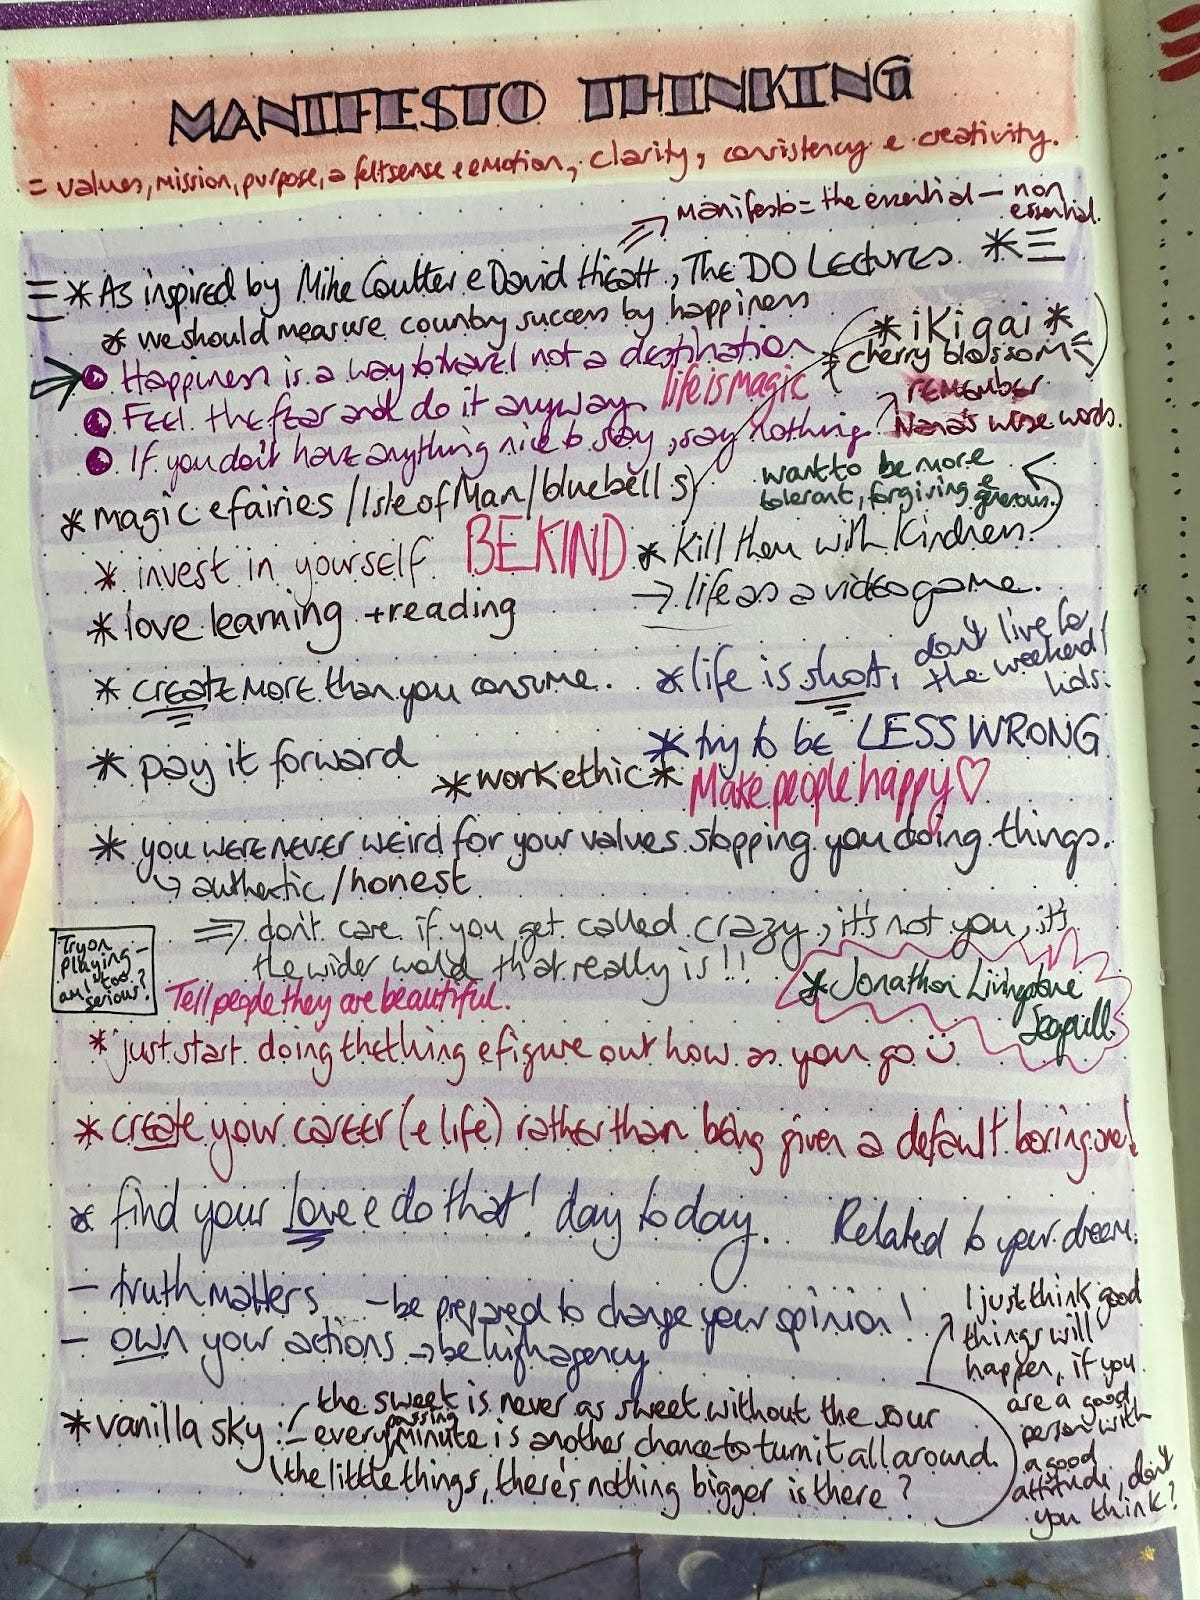 MANIFESTO THINKING
= values, mission, purpose, a felt sense e emotion, clarity, consistency e creativity.
Manifesto = the essential – non essential.
* As inspired by Mike Coulter e David Hieatt, The DO Lectures. *
* we should measure country success by happiness
* ikigai *
Happiness is a way to travel not a destination
cherry blossom
life is magic
remember
Feel the fear and do it anyway.
Nana's wise words.
If you don't have anything nice to say, say nothing.
want to be more
tolerant, forgiving e generous.
* magic e fairies / Isle of Man / bluebells
BE KIND
* Kill them with kindness.
* invest in yourself
→ life as a video game.
* love learning + reading
* create more than you consume.
* life is short, don't live for the weekend kids.
* try to be LESS WRONG
* pay it forward
* work ethic *
Make people happy ♡
* you were never weird for your values stopping you doing things.
↳ authentic / honest
⇒ don't care if you get called crazy, it's not you, it's
the wider world that really is!!
Try on
playing –
am I too
serious?
* Jonathon Livingstone
Seagull.
Tell people they are beautiful.
* just start doing the thing e figure out how as you go
* create your career (e life) rather than being given a default boring one!
* find your love e do that! day to day. Related to your dream.
– truth matters – be prepared to change your opinion!
– own your actions → be high agency
I just think good
things will
happen, if you
are a good
person with
a good
attitude, don't
you think?
* vanilla sky:– the sweet is never as sweet without the sour
every passing minute is another chance to turn it all around.
the little things, there's nothing bigger is there?